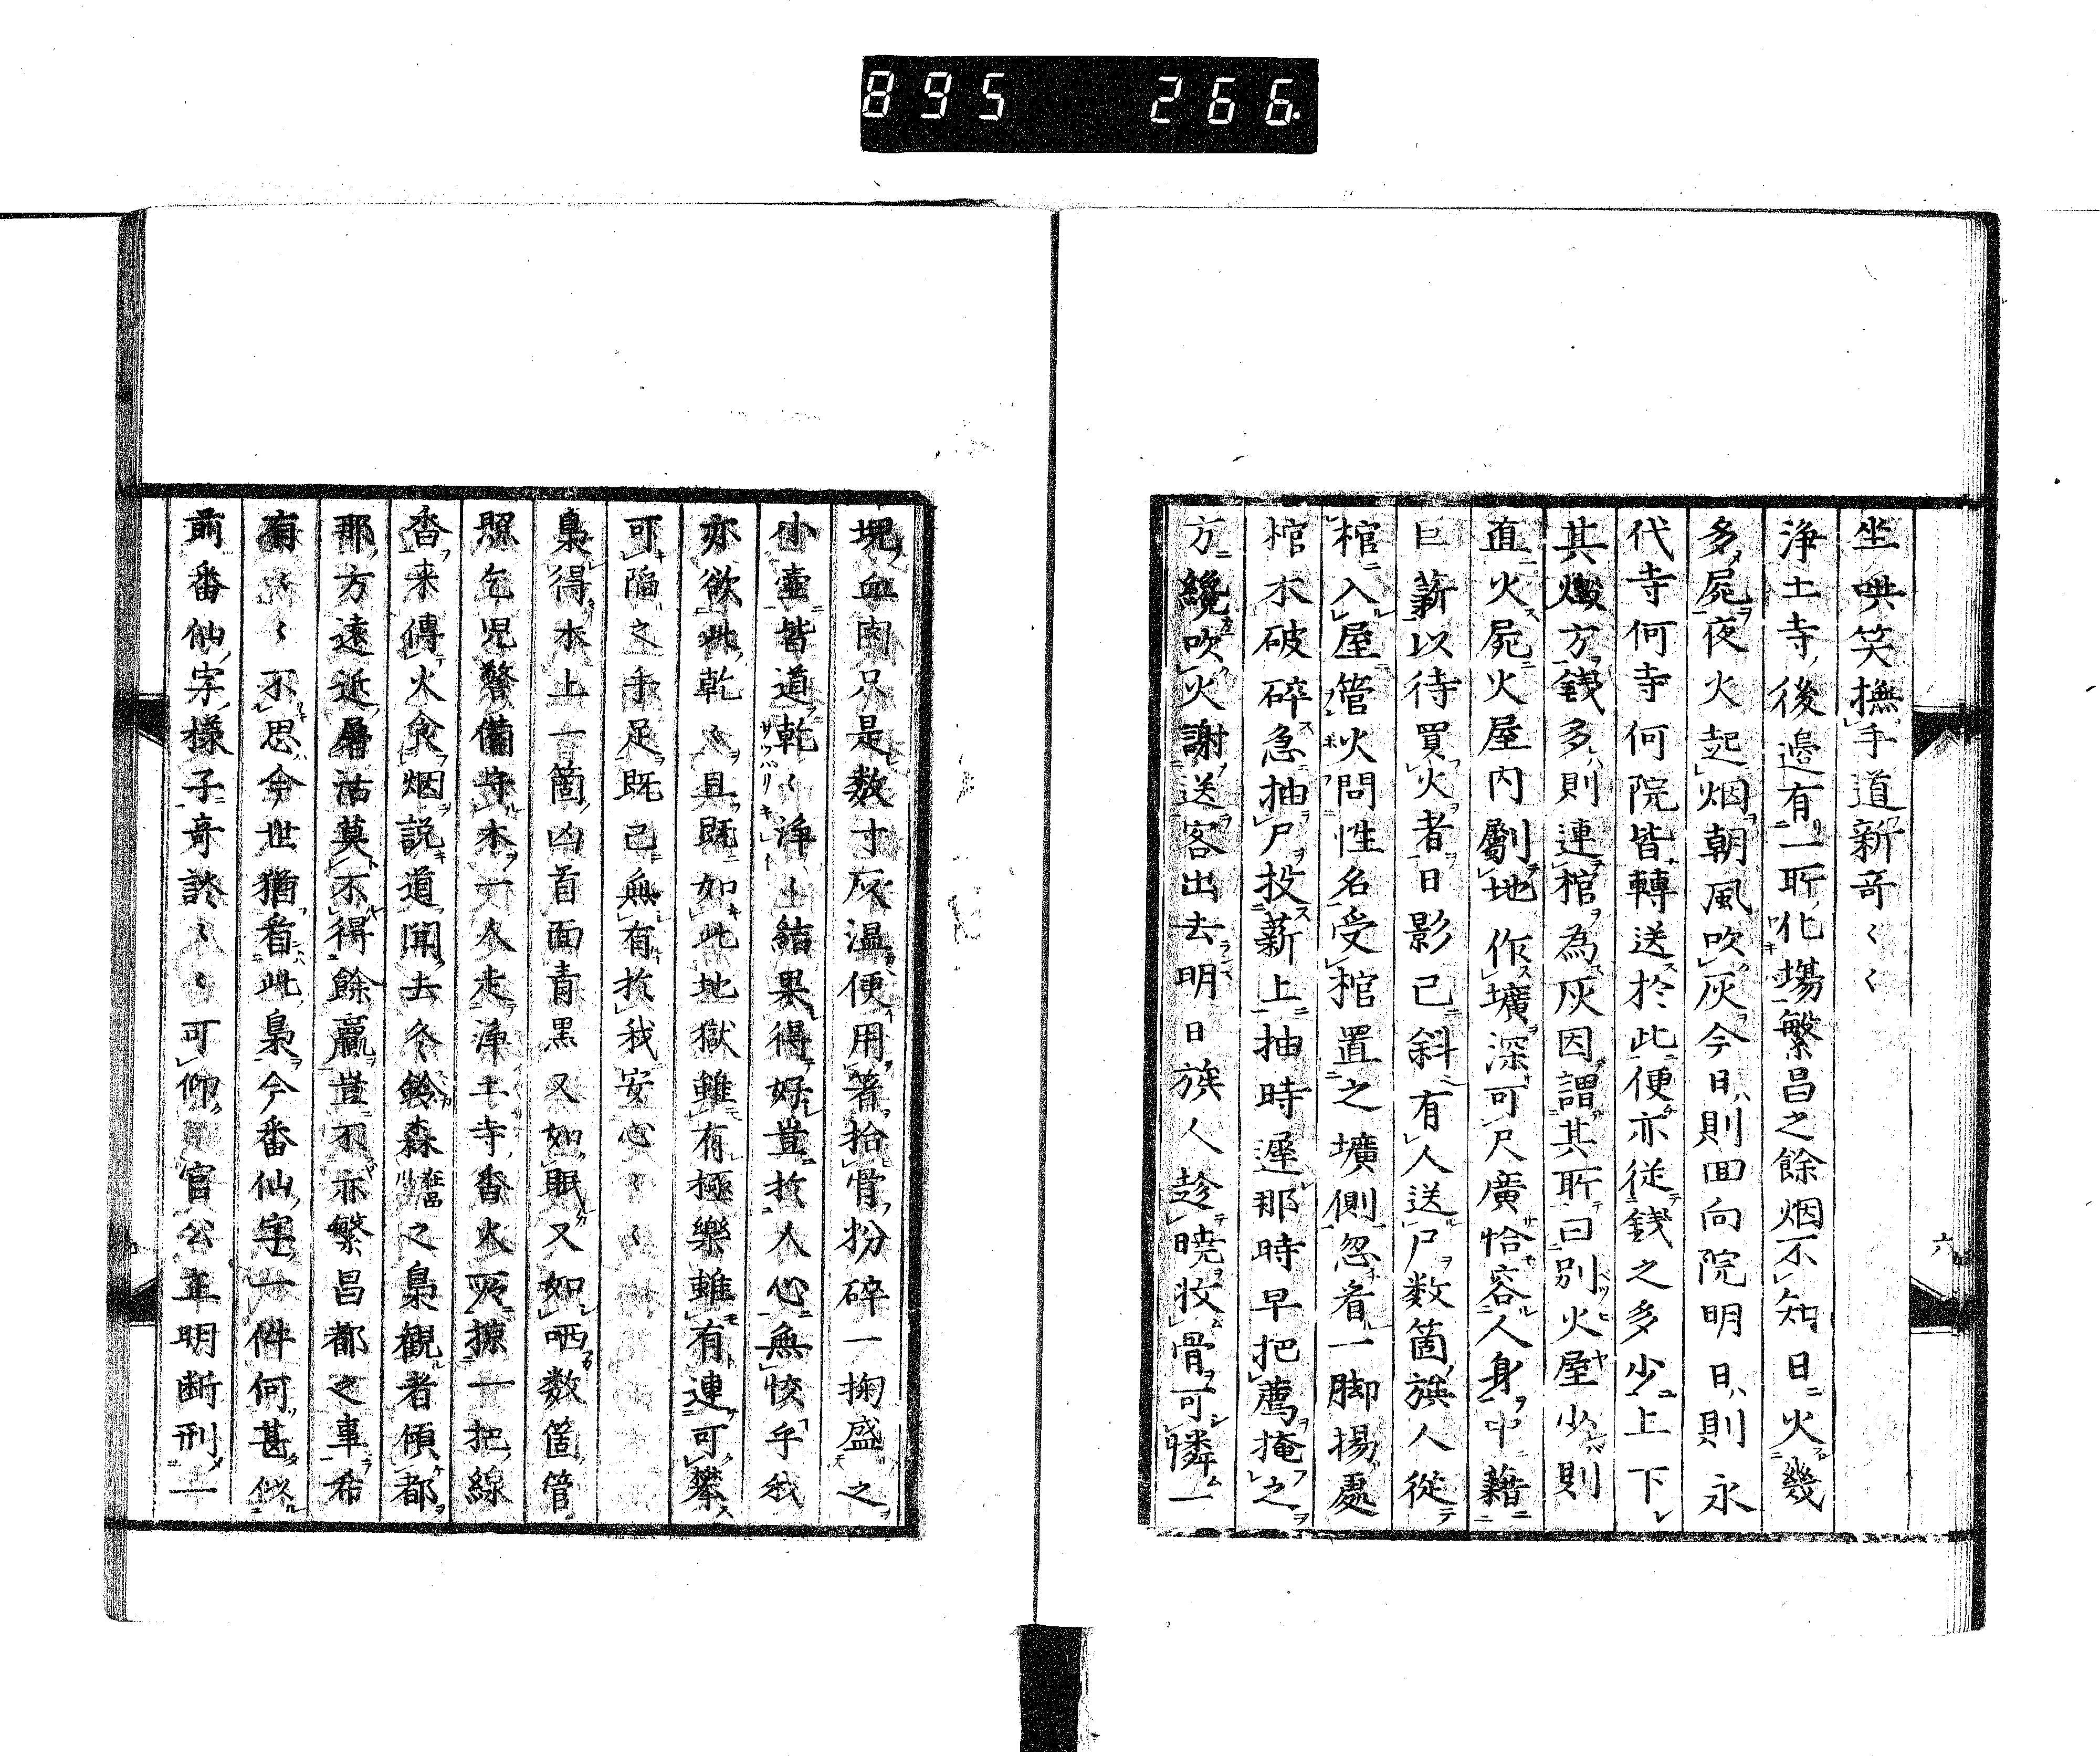 895 266
六
坐哄笑撫手道新奇〻〻
浄土寺後邉有一所化場繁昌之餘烟不知日火幾
多屍夜火起烟朝風吹灰今日則回向院明日則永
代寺何寺何院皆轉送於此便亦従錢之多少上下
其燬方錢多則連棺為灰因謂其所曰別火屋少則
直火屍火屋内劚地作壙深可尺廣恰容人身中藉
巨薪以待買火者日影已斜有人送尸数箇族人従
棺入屋管火問性名受棺置之壙側忽看一脚揚處
棺木破碎急抽尸投薪上抽時遲那時早把薦掩之
方纔吹火謝送客出去明日族人趁曉收骨可憐一
塊血肉只是数寸灰温便用箸拾骨扮碎一掬盛之
小壷皆道乾〻浄〻結果得好豈於人心無恔乎我
亦欲此乾〻且既如此地獄雖有極樂雖有連可攀
可陥之手足既已無有於我安心〻〻
梟得木上一箇凶首面青黒又如眠又如哂数箇管
照乞児警備寺木一人走浄土寺香火所掠一把線
香来傳火食烟説道聞去冬鈴森在品川之梟観者傾都
那方遠近屠沽莫不得餘贏豈不亦繁昌都之事希
有〻〻不思今世猶看此梟今番仙字一件何甚似
前番仙字樣子奇談〻〻可仰〻官公正明断刑一